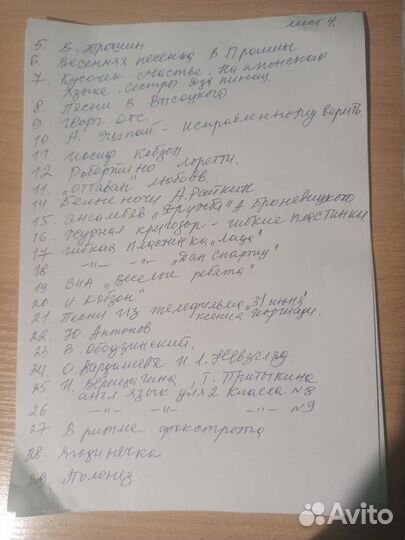 лист 4.
5. В. Трошин
6. Весенняя песенка В Трошин
7. Кусочек счастья. На японском
языке. Сестры Дза пинац.
8 Песни В Высоцкого
9 Георг Отс.
10 А. Эшпай - исправленному верить
11. Иосиф Кобзон
12 Робертино Лоретти.
11. "Оттаваи" любовь.
14 Белые ночи А. Райкин.
15. Ансамблев "Дружба" А Броневицкого
16. Журнал кругозор - гибкие пластинки
17 гибкая пластинка "Лада"
18. -"- -"- "Дан Спатару"
19 ВИА "Веселые ребята"
20 И Кобзон"
21. Песни из телефильма "31 июня"
Ксения Георгиади.
22 Ю. Антонов
23 В. Ободзинский.
24 О. Вардашева И. Л. Невзгляд.
25 И. Верещагина, Т. Притыкина
англ язык для 2 класса №8
26 -"- -"- -"- №9
27 В ритме фокстрота
28. Ягодиночка
29. Полонез.
Avito